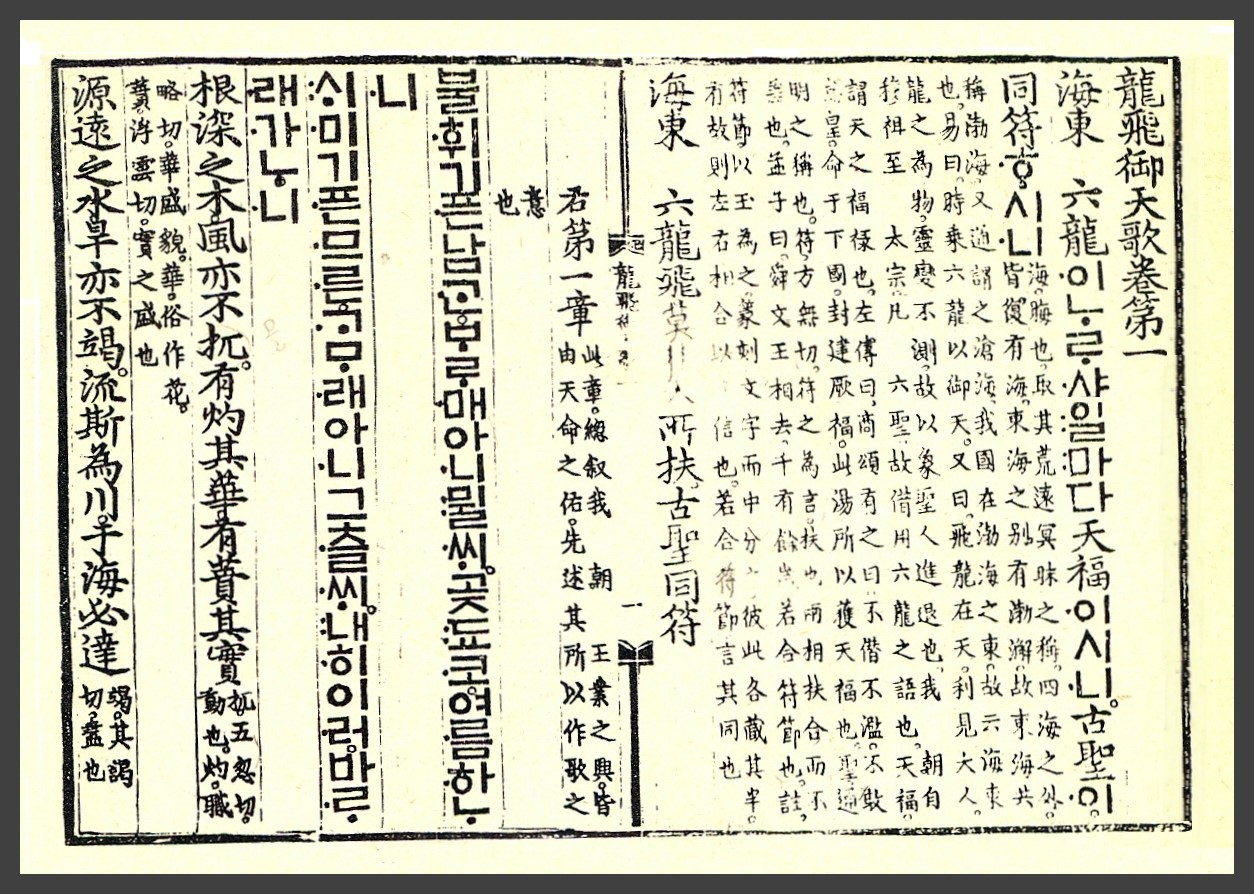 龍飛御天歌卷第一
海東 六龍이ᄂᆞᄅᆞ샤일마다天福이시니。古聖이
同符ᄒᆞ시니
海。晦也。取其荒遠冥昧之稱。四海之外。
皆復有海。東海之別有渤澥。故東海共
稱渤海。又通謂之滄海。我國在渤海之東。故云海東
也。易曰。時乘六龍以御天。又曰。飛龍在天。利見大人。
龍之為物。靈變不測。故以象聖人進退也。我 朝自
穆祖至 太宗。凡 六聖。故借用六龍之語也。天福。
謂天之福祿也。左傳曰。商頌有之曰。不僭不濫。不敢
怠皇。命于下國。封建厥福。此湯所以獲天福也。聖。通
明之稱也。符。方無切。符之為言扶也。兩相扶合而不
差也。孟子曰。舜文王相去千有餘歲。若合符節也。註。
符節以玉為之。篆刻文字而中分之。彼此各藏其半。
有故則左右相合以 信也。若合符節。言其同也
海東 六龍飛莫 人所扶。古聖同符
龍飛
一
右第一章
此章。總叙我 朝 王業之興。皆
由天命之佑。先述其所以作歌之
意
也
불휘기픈남ᄀᆞᆫᄇᆞᄅᆞ매아니뮐ᄊᆡ。곶됴코여름하ᄂᆞ
니
ᄉᆡ미기픈므른ᄀᆞᄆᆞ래아니그츨ᄊᆡ。내히이러바ᄅᆞ
래가ᄂᆞ니
根深之木風亦不扤。有灼其華有蕡其實
扤。五忽切。
動也。灼。職
略切。華盛貌。華。俗作花。
蕡。浮雲切。實之盛也
源遠之水旱亦不竭。流斯為川。于海必達
竭。其謁
切。盡也